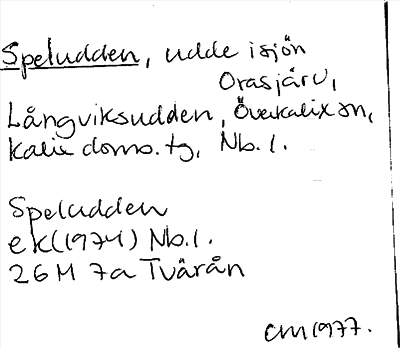 Speludden, udde i sjön
Orasjärv,
Långviksudden, Överkalix sn,
Kalix doms. tg, Nb. l.
Speludden
ek (1974) Nb. l.
26 M 7a Tvärån
CM 1977.